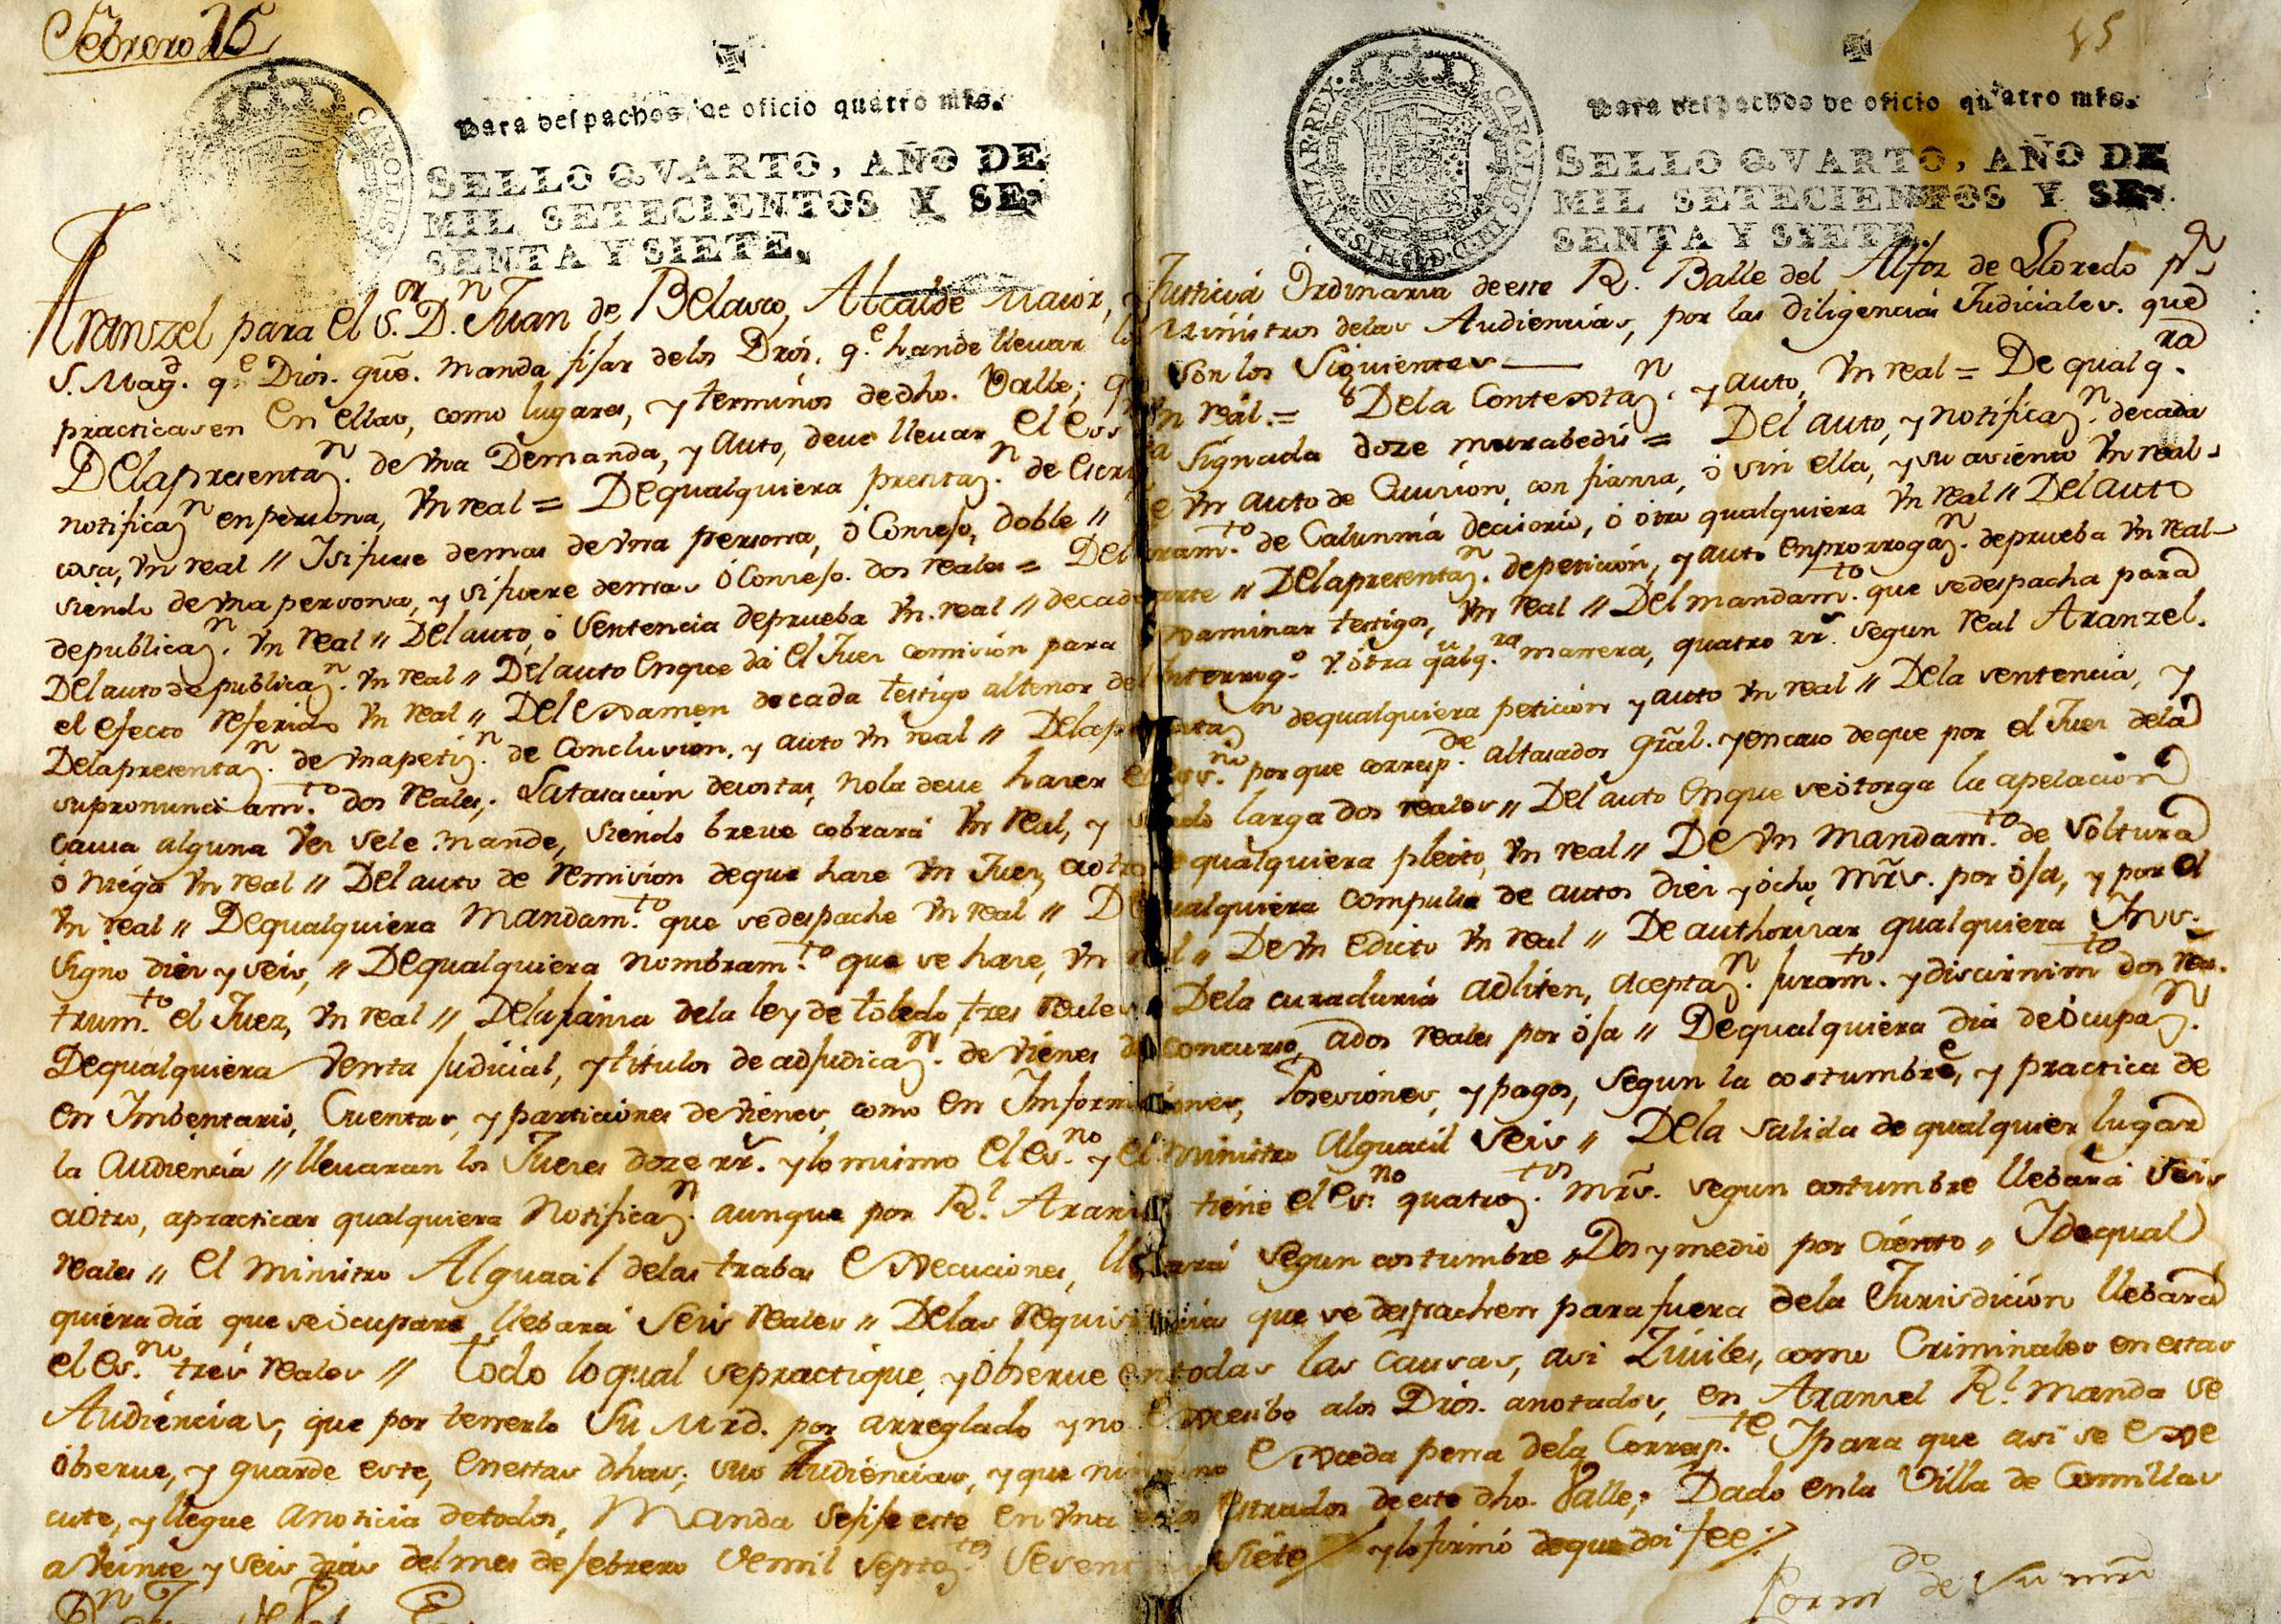 Febrero 26
Para despachos de oficio quatro mrs.
SELLO QVARTO, AÑO DE
MIL SETECIENTOS Y SE-
SENTA Y SIETE.
CAROLUS III D G HISPANIAR REX
Para despachos de oficio quatro mrs.
SELLO QVARTO, AÑO DE
MIL SETECIENTOS Y SE-
SENTA Y SIETE
Aranzel para el S.or D.n Juan de Belasco, Alcalde Maior, y Justicia Ordinaria de este R.l Balle del Alfoz de Lloredo p.r
S. Mag.d q.e Dios gue. manda fijar delos Dros. q.e hande llevar los Ministros delas Audiencias, por las diligencias Judiciales que
practicasen En ellas, como lugares, y terminos dedho. Valle; que son los Siguientes
Dela presentaz.n de Vna Demanda, y auto, deve llevar el Ess.no Vn real = Dela Contestaz.n y auto, Vn real = De qualq.ra
notificaz.n en persona, Vn real = De qualquiera presentaz.n de Escriptura Signada doze marabedis = Del auto, y notificaz.n de cada
cosa, Vn real // I si fuere demas de Vna persona, ó Concejo, doble // De Vn auto de Caucion, con fianza, ó sin ella, y su asiento Vn real
siendo de Vna persona, y si fuere demas ó Concejo. dos reales = Del juram.to de Calunnia decisorio, ó otro qualquiera Vn real // Del auto
de publicaz.n Vn real // Del auto, ó Sentencia de prueba Vn real // de cada parte // Dela presentaz.n de peticion, y auto en prorrogaz.n de prueba Vn real
Del auto de publicaz.n Vn real // Del auto Enque dá el Juez comision para examinar testigos, Vn real // Del mandam.to que se despacha para
el efecto referido Vn real // Del Examen de cada testigo altenor del Interrog.o v otra qualq.ra manera, quatro rr.s segun real Aranzel.
Dela presentaz.n de Vna petiz.n de Conclusion, y auto Vn real // Dela presentaz.n de qualquiera peticion y auto Vn real // Dela sentencia, y
su pronunciam.to dos reales; La tasacion de costas, no la deve hazer el Ess.no por que corresp.de al tasador gral. y en caso de que por el Juez dela
causa alguna Vez se le mande, siendo breve cobrará Vn real, y siendo larga dos reales // Del auto Enque se otorga la apelacion
ó niega Vn real // Del auto de remision de que haze Vn Juez, a otro de qualquiera pleito, Vn real // De Vn Mandam.to de Soltura
Vn real // De qualquiera Mandam.to que se despache Vn real // De qualquiera compulsa de autos diez y ocho Mrs. por oja, y por el
Signo diez y seis, // De qualquiera nombram.to que se haze, Vn real // De Vn Edicto Vn real // De authorizar qualquiera Ins-
trum.to el Juez, Vn real // Dela fianza dela ley de toledo, tres reales // Dela curaduria adliten, aceptaz.n juram.to y discernim.to dos rea.
De qualquiera Venta Judicial, y titulos de adjudicaz.n de Vienes de Concurso, a dos reales por oja // De qualquiera dia de ocupaz.n
en Imbentario, Cuentas, y particiones de Vienes, como en Informaciones, Posesiones, y pagos, segun la costumbre, y practica de
la Audiencia // llevaran los Juezes doze rr.s y lo mismo el Es.no y el Ministro Alguacil seis // Dela salida de qualquier lugar
a otro, a practicar qualquiera Notificaz.n aunque por R.l Aranzel tiene el Es.no quatroz.tos Mrs. segun costumbre llebará seis
reales // el Ministro Alguacil delas trabas Execuciones, llebará segun costumbre // Dos y medio por Ciento // I de qual
quiera dia que se ocupare llebará seis reales // Delas requisitorias que se despachen para fuera dela Jurisdicion llebará
el Es.no tres reales // Todo lo qual se practique, y observe en todas las causas, asi Ziviles, como Criminales en estas
Audiencias, que por tenerlo Su Mrd. por arreglado y no Excesibo a los Dros. anotados, en Aranzel R.l manda se
observe, y guarde este, en estas dhas. sus Audiencias, y que ninguno Exceda pena dela Corresp.te I para que asi se Exe
cute, y llegue a noticia de todos, Manda se fije este en Vna de los Estrados de este dho. Valle; Dado en la Villa de Comillas
a Veinte y seis dias del mes de febrero de mil Septez.tos Sesenta y siete / y lo firmó de que doi fee //
Por m.do de su mrd